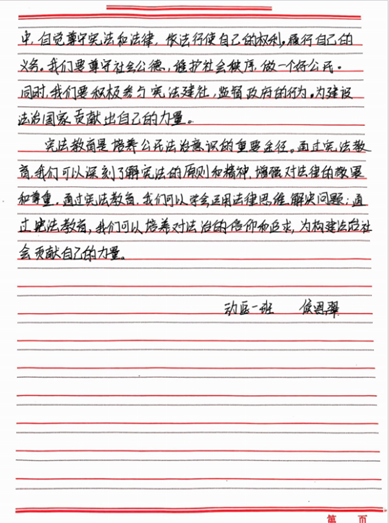 中，自觉遵守宪法和法律，依法行使自己的权利，履行自己的
义务。我们要遵守社会公德，维护社会秩序，做一个好公民。
同时，我们要积极参与宪法建设，监督政府的行为，为建设
法治国家贡献出自己的力量。
宪法教育是培养公民法治意识的重要途径。通过宪法教
育，我们可以深刻了解宪法的原则和精神，增强对法律的敬畏
和尊重。通过宪法教育，我们可以学会运用法律思维解决问题；通
过宪法教育，我们可以培养对法治的信仰和追求，为构建法治社
会贡献自己的力量。
动医一班 侯恩翠
第 页